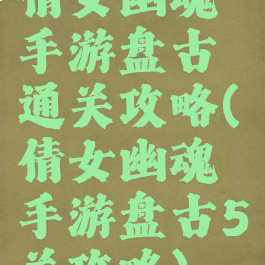 倩女幽魂
手游盘古
通关攻略(
倩女幽魂
手游盘古5
关攻略)